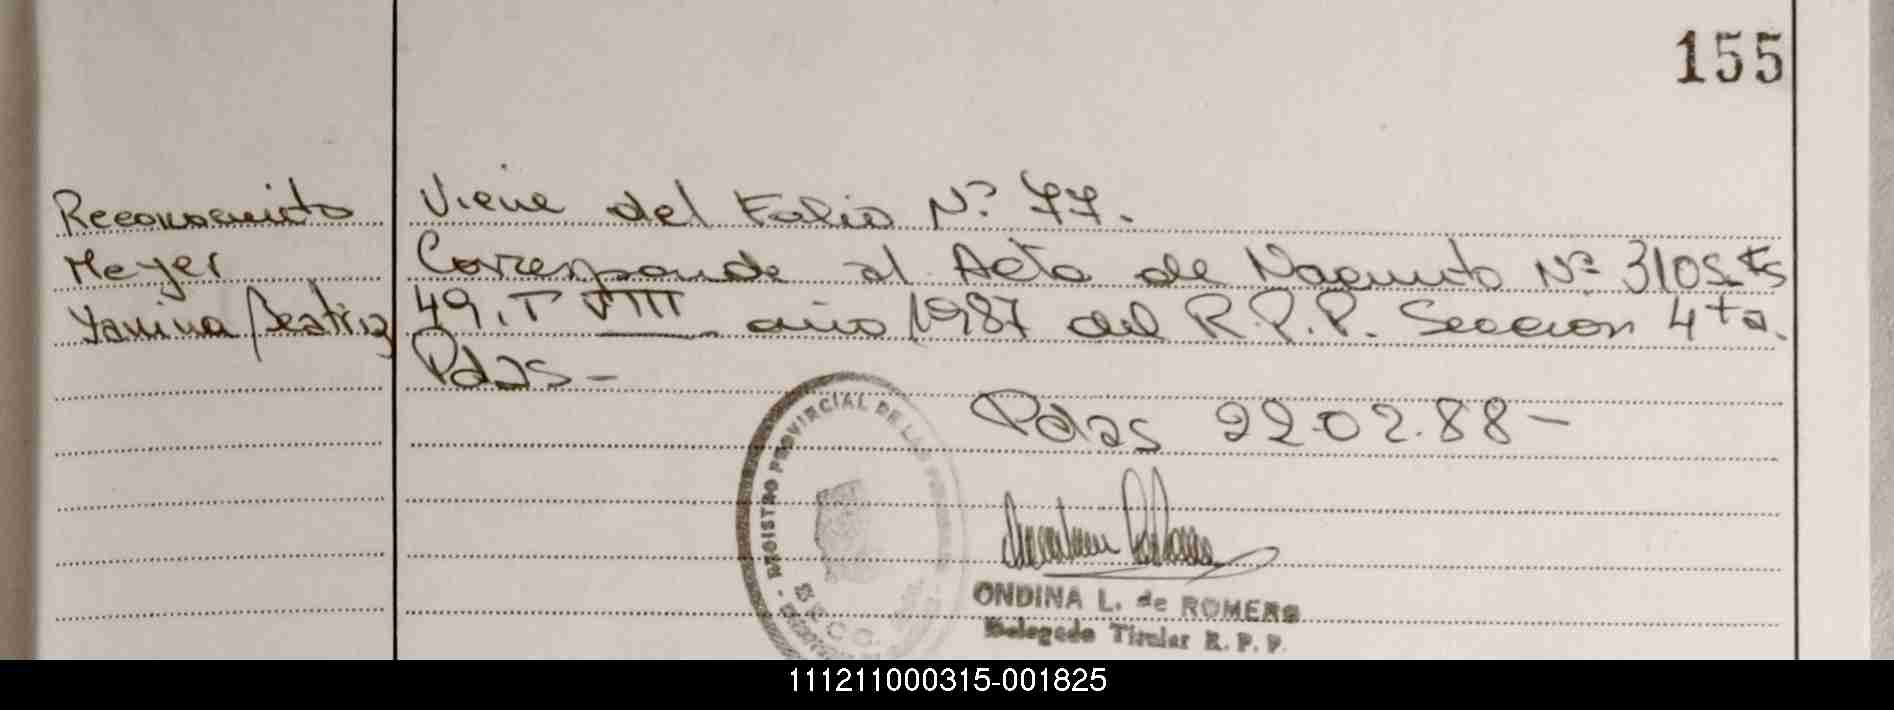 155
Reconocimiento
Meyer
Yanina Beatriz
Viene del Folio Nº 77.
Corresponde al Acta de Nacimiento Nº 3105 Fs
49. T VIII año 1987 del R.P.P. Seccion 4ta.
Pdas -
Pdas 22.02.88-
REGISTRO PROVINCIAL DE LAS PERSONAS
SECC.
ONDINA L. de ROMERO
Delegado Titular R. P. P.
111211000315-001825